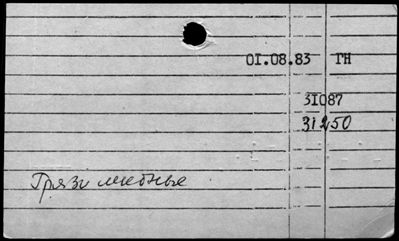 01.08.83 ТН
31087
31250
Грязи лиебные